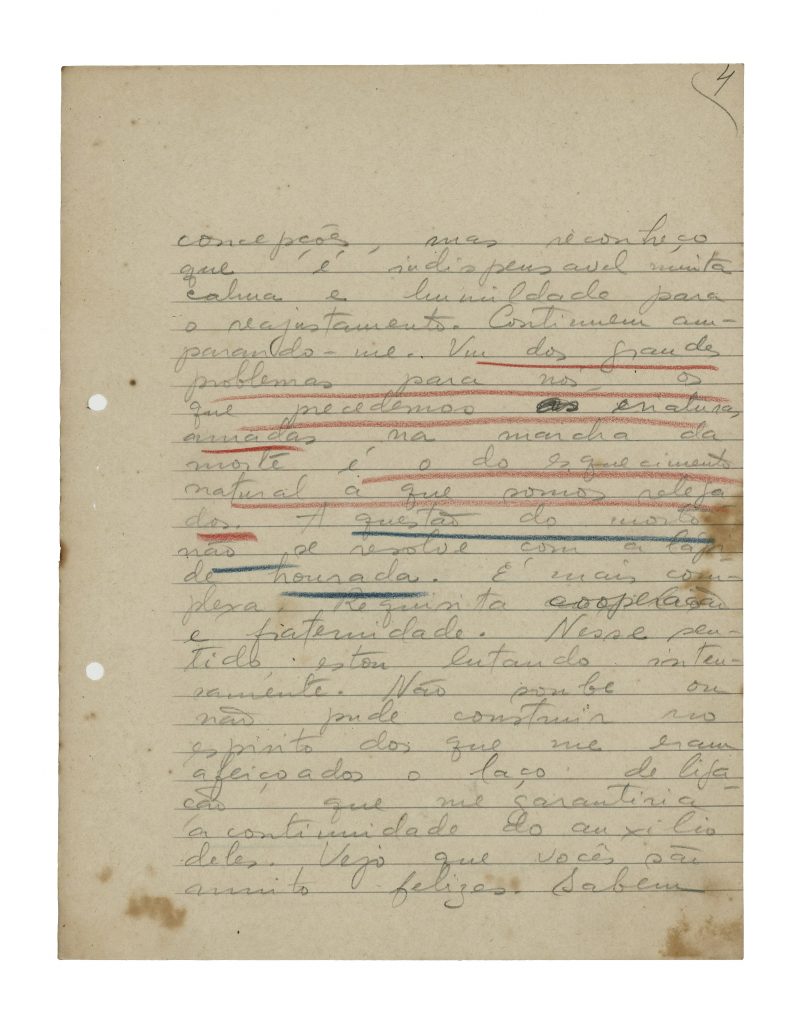 4
concepções, mas reconheço
que é indispensavel muita
calma e humildade para
o reajustamento. Continuem am-
parando-me. Um dos grandes
problemas para nós, os
que precedemos as criaturas
amadas na marcha da
morte é o do esquecimento
natural a que somos relega
dos. A questão do morto
não se resolve com a lapi
de honrada. É mais com-
plexa. Requisita cooperação
e fraternidade. Nesse sen-
tido estou lutando inten-
samente. Não soube ou
não pude construir no
espirito dos que me eram
afeiçoados o laço de liga
ção que me garantiria
a continuidade do auxilio
deles. Vejo que vocês são
muito felizes. Sabem